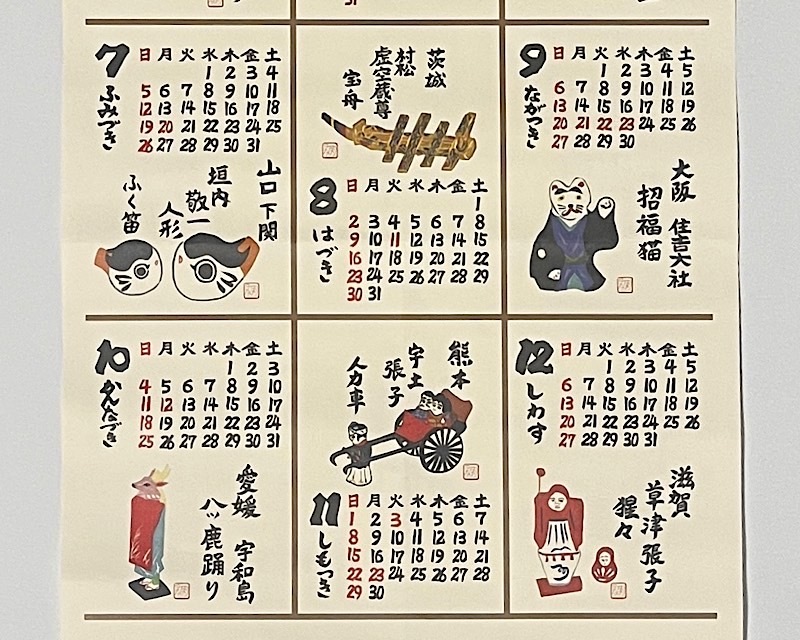 7
ふみづき
日 月 火 水 木 金 土
1 2 3 4
5 6 7 8 9 10 11
12 13 14 15 16 17 18
19 20 21 22 23 24 25
26 27 28 29 30 31
山口 下関
垣内
敬一
人形
ふく笛
茨城
村松
虚空蔵尊
宝舟
8
はづき
日 月 火 水 木 金 土
1
2 3 4 5 6 7 8
9 10 11 12 13 14 15
16 17 18 19 20 21 22
23 24 25 26 27 28 29
30 31
9
ながつき
日 月 火 水 木 金 土
1 2 3 4 5
6 7 8 9 10 11 12
13 14 15 16 17 18 19
20 21 22 23 24 25 26
27 28 29 30
大阪 住吉大社
招福猫
10
かんなづき
日 月 火 水 木 金 土
1 2 3
4 5 6 7 8 9 10
11 12 13 14 15 16 17
18 19 20 21 22 23 24
25 26 27 28 29 30 31
愛媛 宇和島
八ッ鹿踊り
熊本
宇土
張子
人力車
11
しもつき
日 月 火 水 木 金 土
1 2 3 4 5 6 7
8 9 10 11 12 13 14
15 16 17 18 19 20 21
22 23 24 25 26 27 28
29 30
12
しわす
日 月 火 水 木 金 土
1 2 3 4 5
6 7 8 9 10 11 12
13 14 15 16 17 18 19
20 21 22 23 24 25 26
27 28 29 30 31
滋賀
草津張子
猩々